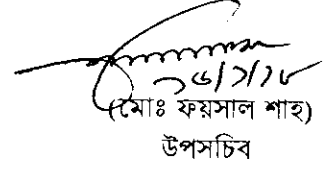 ১৬/১/১৮
(মোঃ ফয়সাল শাহ)
উপসচিব